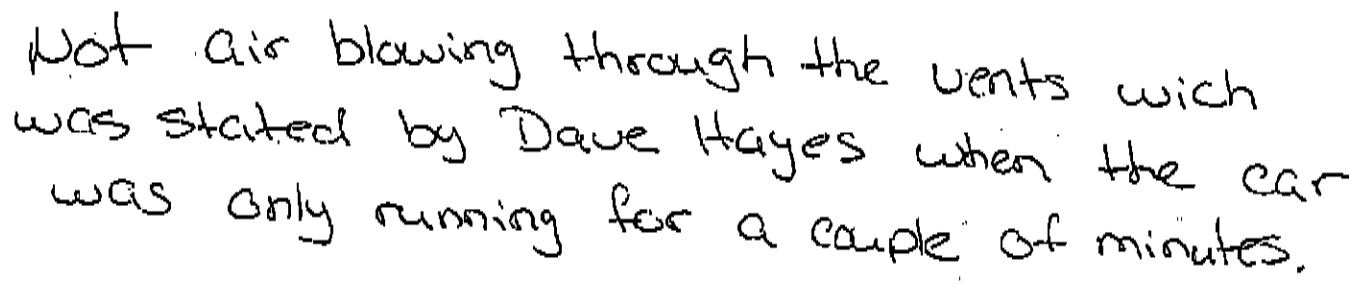 Hot air blowing through the vents wich
was stated by Dave Hayes when the car
was only running for a couple of minutes.